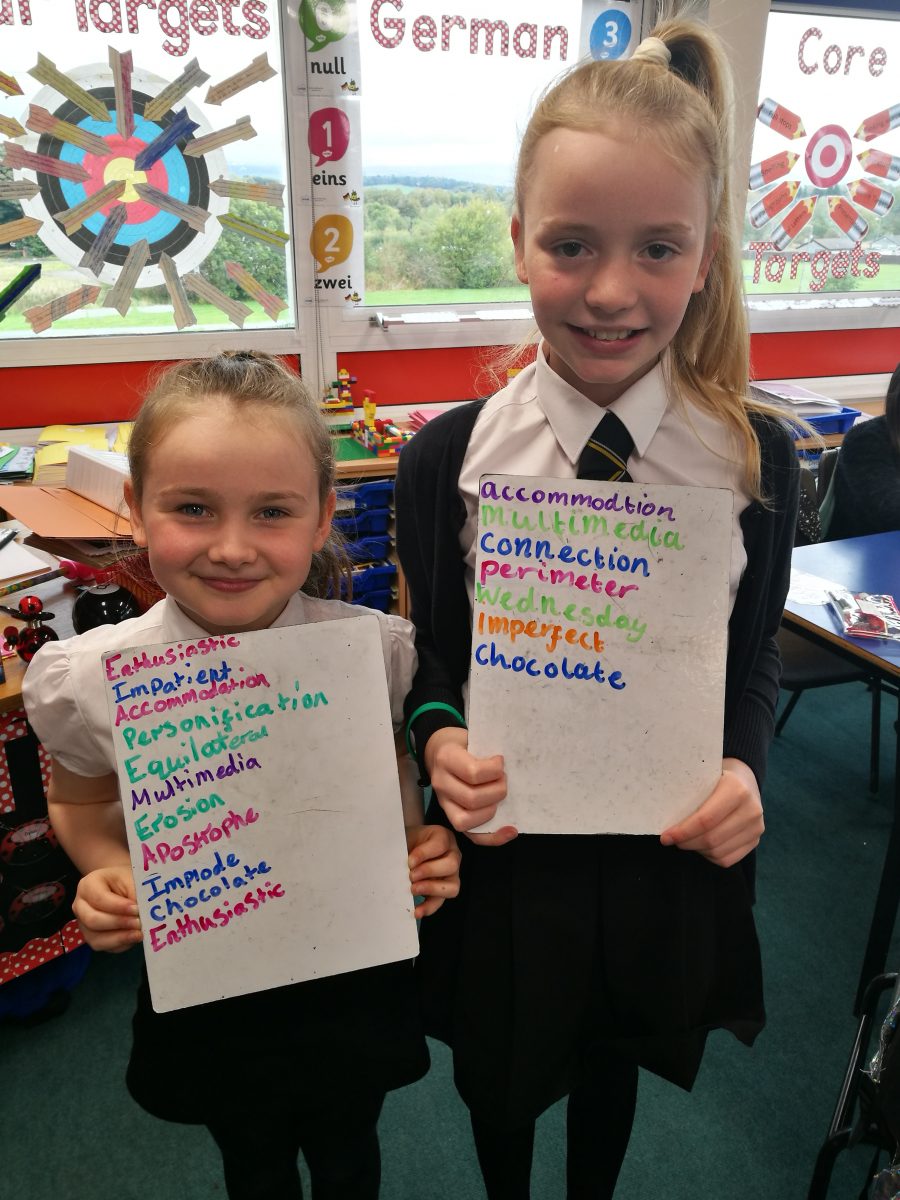 Targets
German
Core
Targets
null
1
eins
2
zwei
3
Enthusiastic
Impatient
Accommodation
Personification
Equilateral
Multimedia
Erosion
Apostrophe
Implode
Chocolate
Enthusiastic
accommodtion
Multimedia
Connection
perimeter
Wednesday
Imperfect
Chocolate